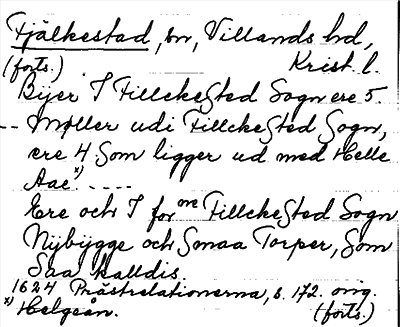 Fjälkestad, sn, Villands hd,
(forts.) Krist. l.
Bÿer I Fillckested Sogn ere 5.
-- Møller udi Fillckested Sogn,
ere 4 Som ligger ud med Helle
Aae x) ----
Ere och I for ne Fillckested Sogn
Nÿbÿgge och Smaa Torper, Som
Saa kalldis.
1624 Prästrelationerna, s. 172. orig.
x) Helgeån. (forts.)